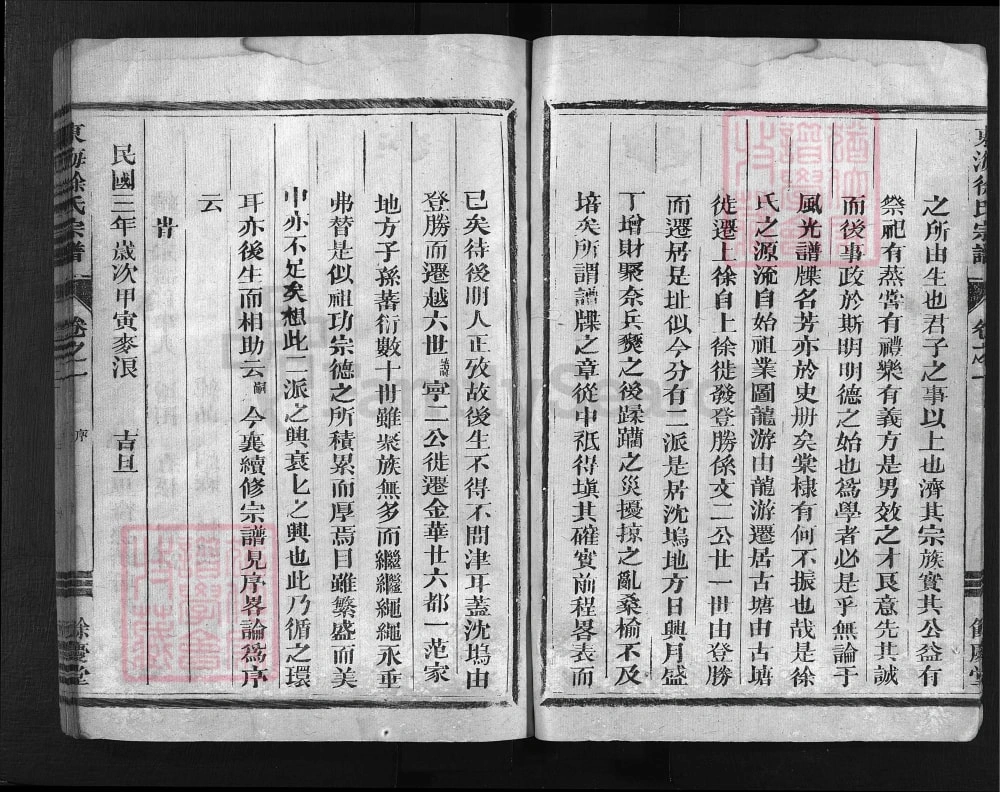 之所由生也君子之事以上也濟其宗族實其公益有
祭祀有蒸嘗有禮樂有義方是男效之才良意先其誠
而後事政於斯明明德之始也爲學者必是乎無論于
風光譜牒名芳亦於史册矣棠棣有何不振也哉是徐
氏之源流自始祖業圖龍游由龍游遷居古塘由古塘
徙遷上徐自上徐徙發登勝係文二公廿一世由登勝
而遷居是址似今分有二派是居沈塢地方日興月盛
丁增財聚奈兵燹之後蹂躪之災擾掠之亂桑榆不及
培矣所謂譜牒之章從中祇得塡其確實前程畧表而
已矣待後明人正攷故後生不得不問津耳蓋沈塢由
登勝而遷越六世 寧二公徙遷金華廿六都一范家
地方子孫蕃衍數十世雖聚族無多而繼繼繩繩永垂
弗替是似祖功宗德之所積累而厚焉目雖繁盛而美
中亦不足矣想此二派之興衰匕之興也此乃循之環
耳亦後生而相助云嗣今襄續修宗譜見序畧論爲序
云
旹
民國三年歲次甲寅麥浪 吉旦
東海徐氏宗譜 卷之一 序 餘慶堂